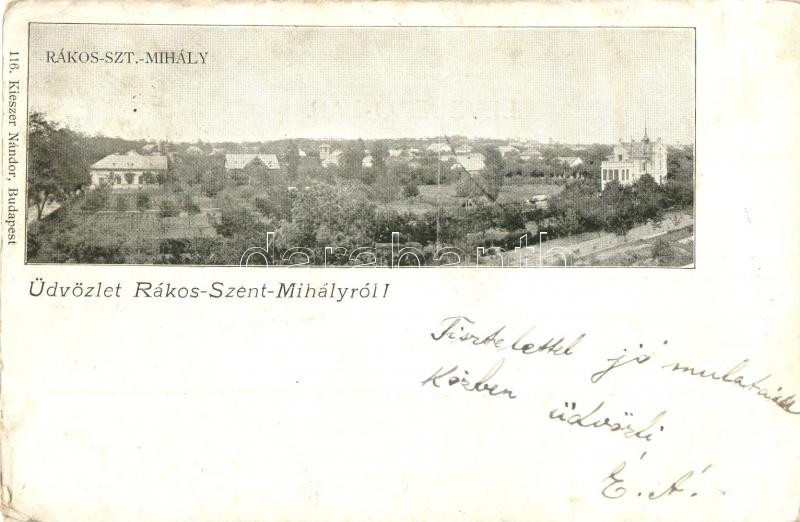 RÁKOS-SZT.-MIHÁLY
116. Kieszer Nándor, Budapest
darabanth
Üdvözlet Rákos-Szent-Mihályról!
Tisztelettel jó mulatás
Közben üdvözli
É. Á.